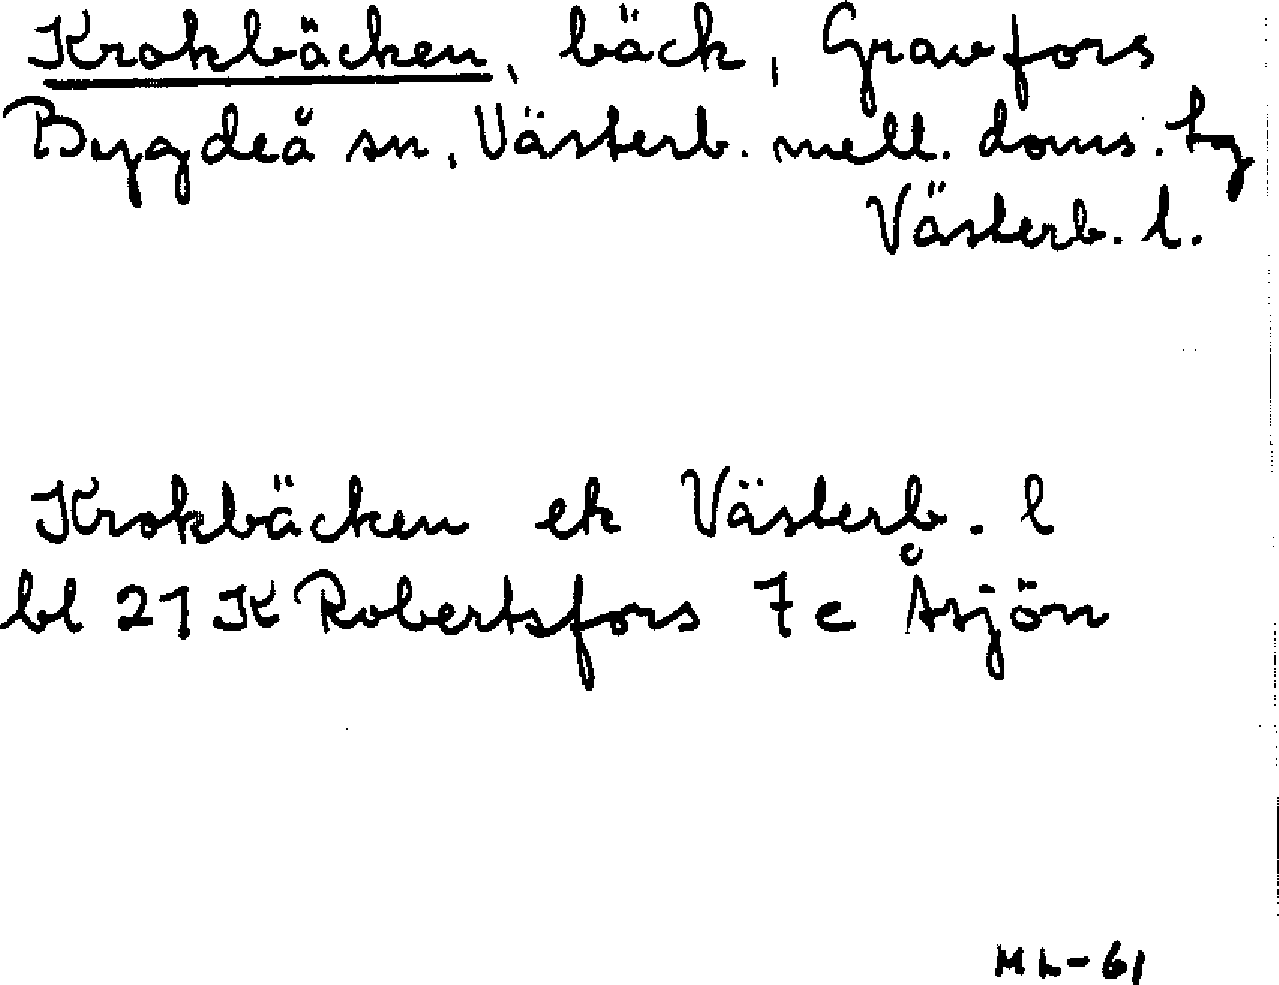 Krokbäcken, bäck, Gravfors
Bygdeå sn, Västerb. mell. doms. tg
Västerb. l.
Krokbäcken ek Västerb. l
bl 21 K Robertsfors 7 c Åsjön
ML-61